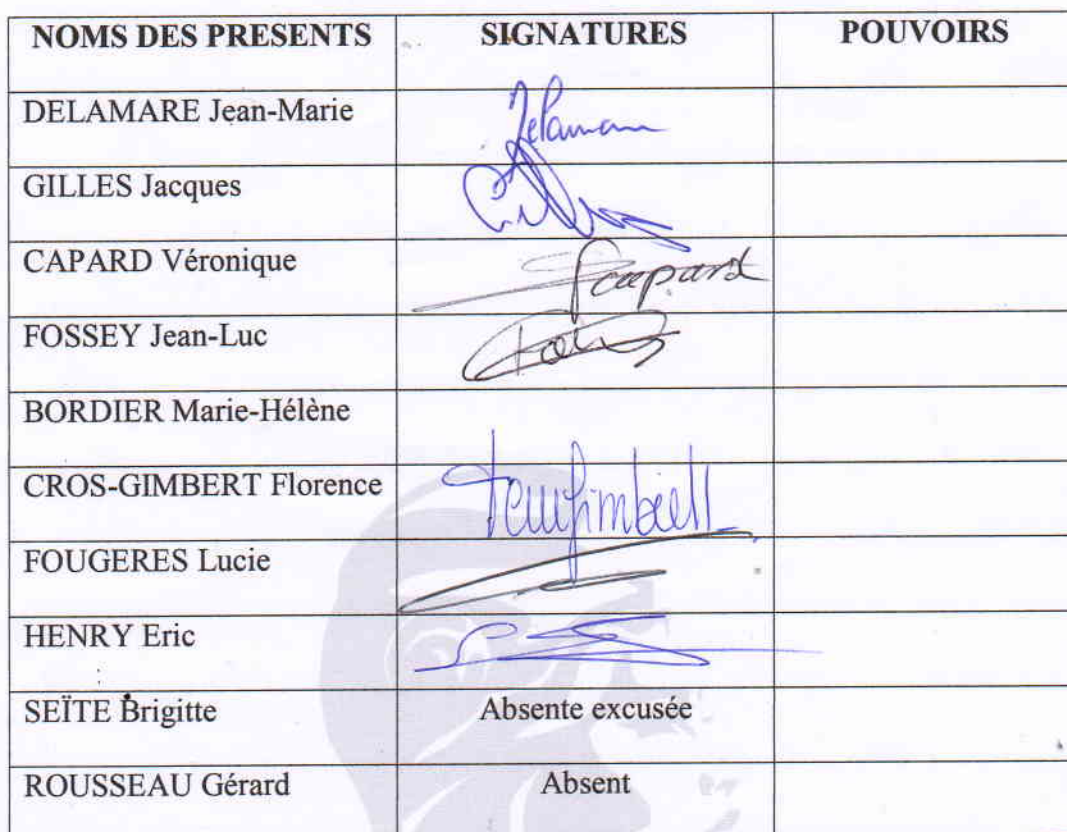 NOMS DES PRESENTS SIGNATURES POUVOIRS
DELAMARE Jean-Marie Delamare
GILLES Jacques
CAPARD Véronique Capard
FOSSEY Jean-Luc
BORDIER Marie-Hélène
CROS-GIMBERT Florence
FOUGERES Lucie
HENRY Eric
SEÏTE Brigitte Absente excusée
ROUSSEAU Gérard Absent